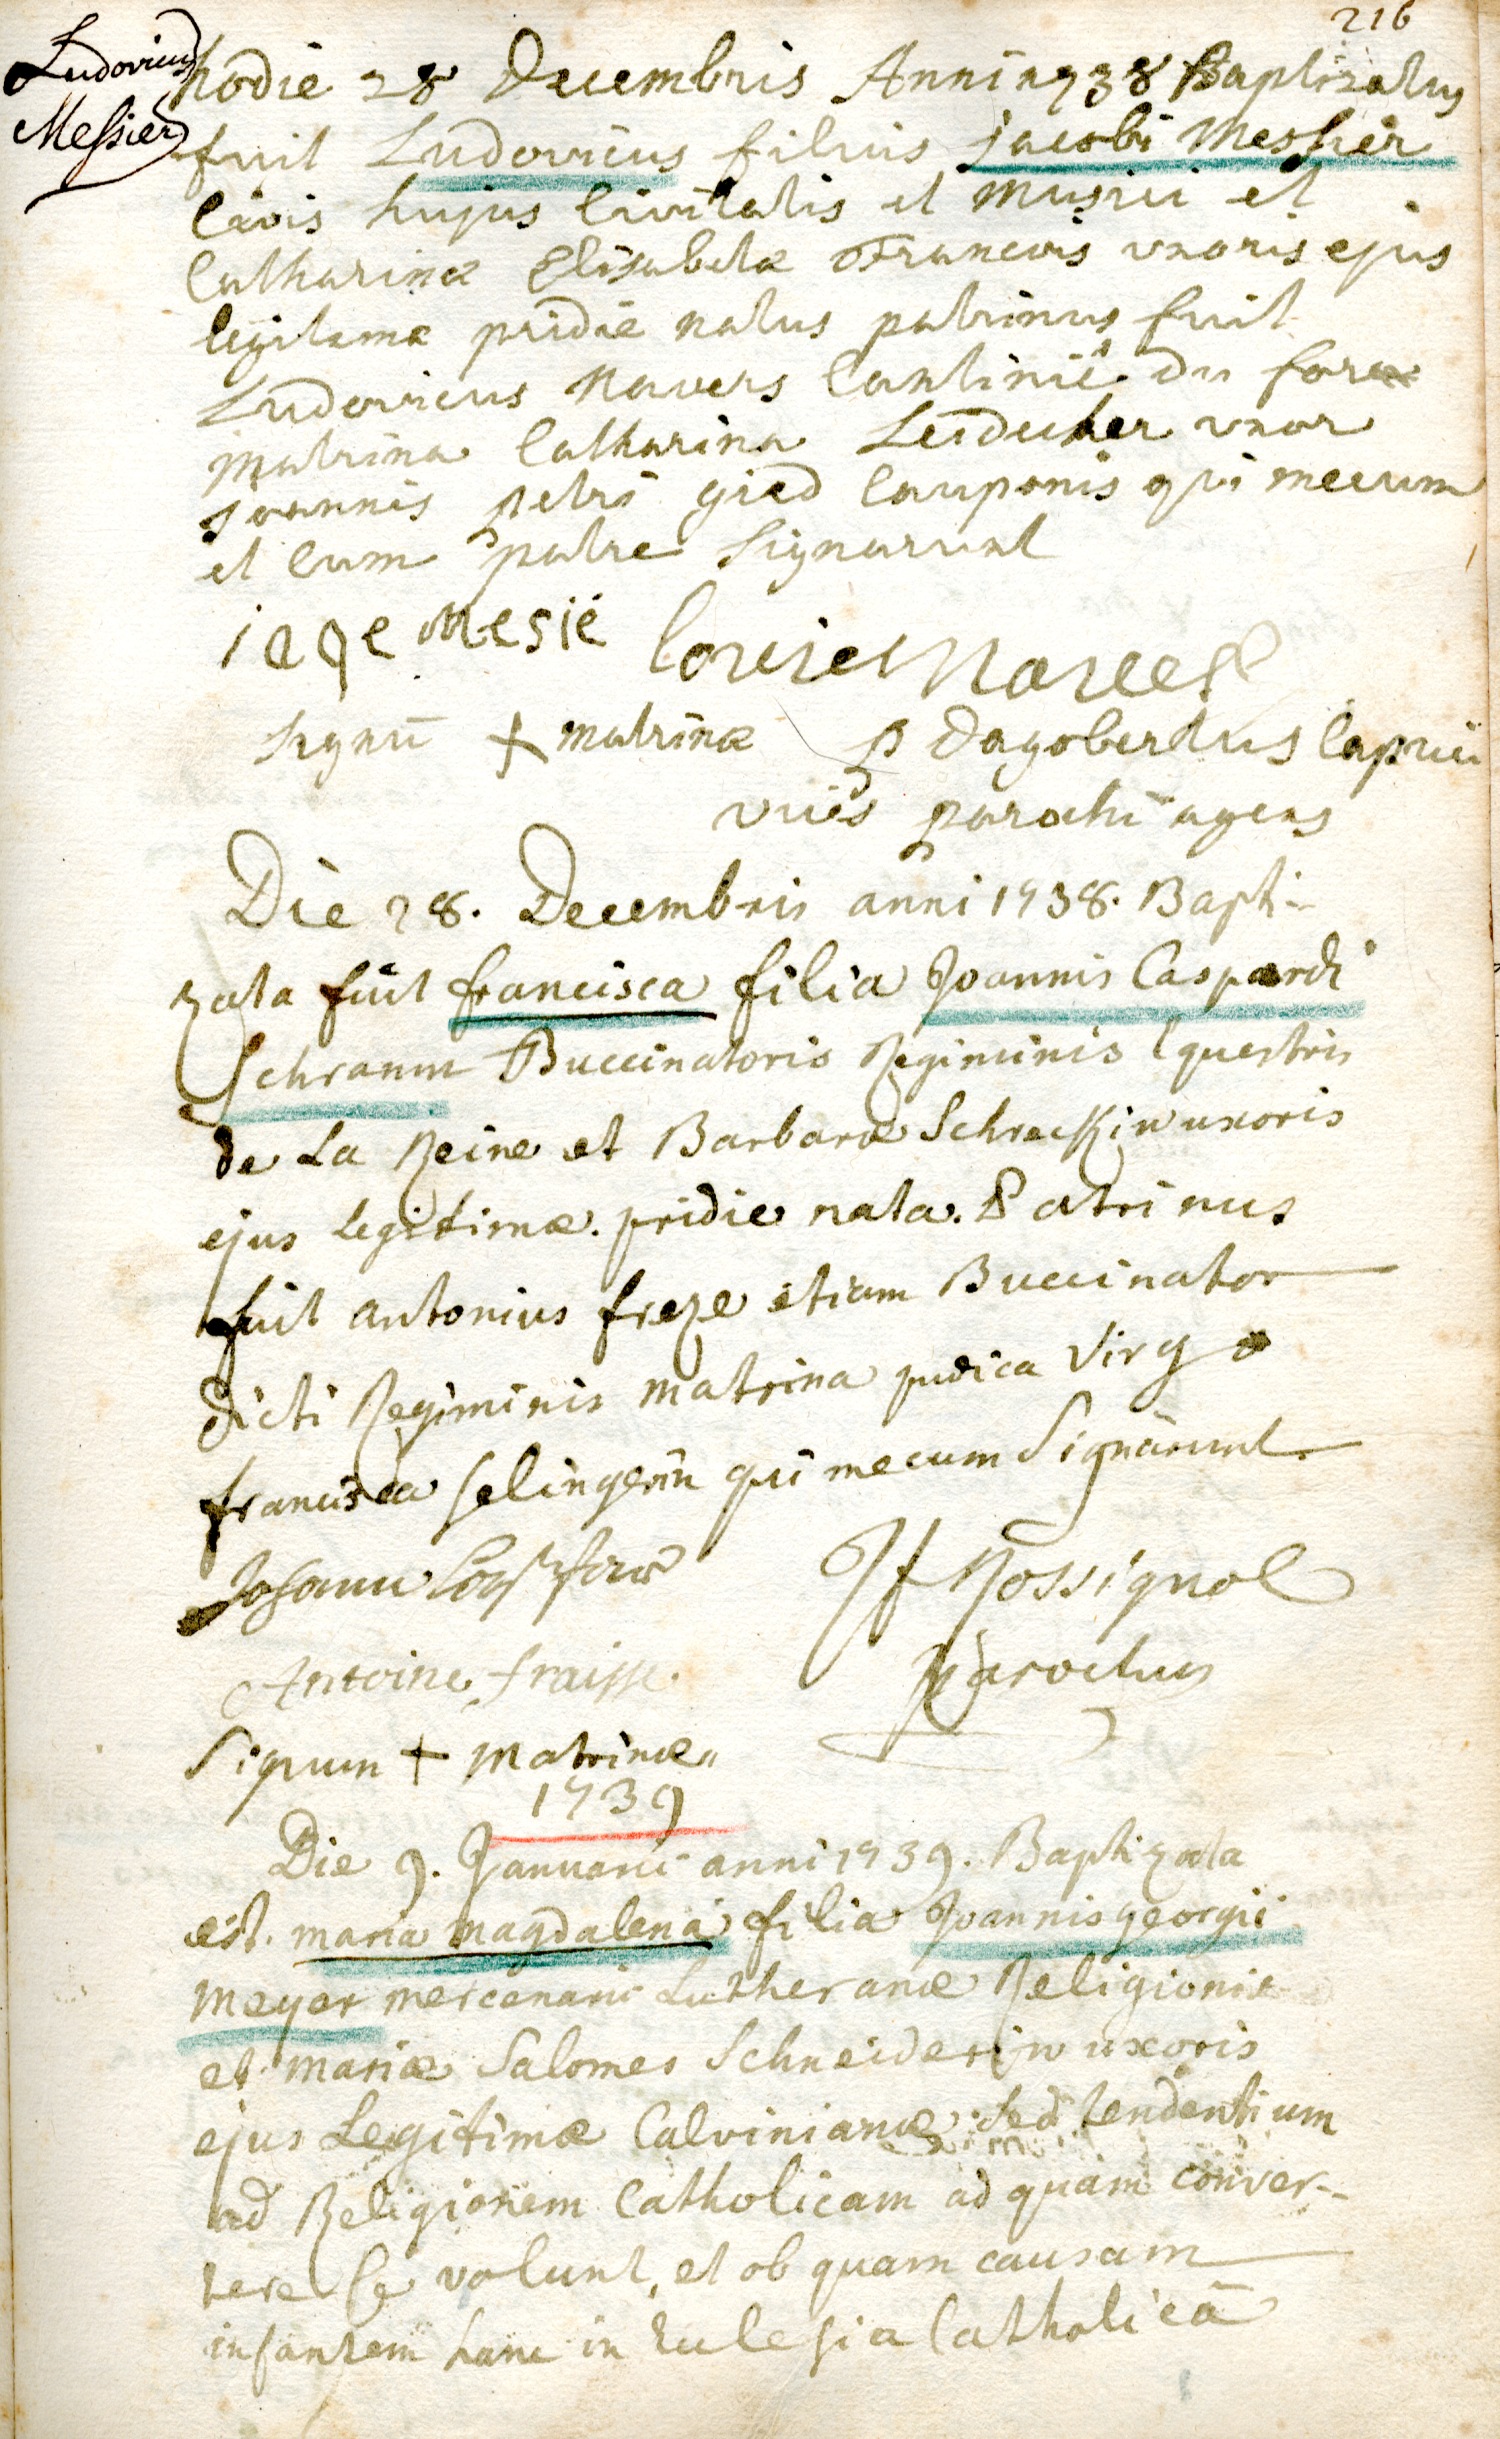 216
Ludovicus
Messier
hodie 28 Decembris Anni 1738 Baptizatus
fuit Ludovicus filius jacobi Messier
Civis hujus Civitatis et Musici et
Catharinæ Elisabetæ Francois uxoris ejus
legitimæ pridie natus patrinus fuit
Ludovicus Navers Cantinié du fort
Matrina Catharina Leidecker uxor
joannis petri gied Cauponis qui mecum
et Cum patre Signarunt
iaqe Mesié
Signū + matrinæ p Dagobertus Capuci
vices parochi agens
Die 28. Decembris anni 1738. Bapti-
zata fuit francisca filia Joannis Caspardi
Schramm Buccinatoris Regiminis Equestris
de La Reine et Barbaræ Schreckin uxoris
ejus legitimæ. pridie nata. Patrinus
fuit antonius freze etiam Buccinator
dicti Regiminis matrina pudica Virgo
francisca selingerin qui mecum Signârunt
Johann
Jf Rossignol
Antoine fraisse
Parochus
Signum + Matrinæ
1739
Die 9. Januarii anni 1739. Baptizata
est. maria magdalena filia Joannis georgii
meyer mercenarii Lutheranæ Religionis
et mariæ Salomes Schneiderin uxoris
ejus Legitimæ Calvinianæ. sed tendentium
ad Religionem Catholicam ad quam conver-
tere se volunt, et ob quam causam
infantem hanc in Eulesia Catholicâ